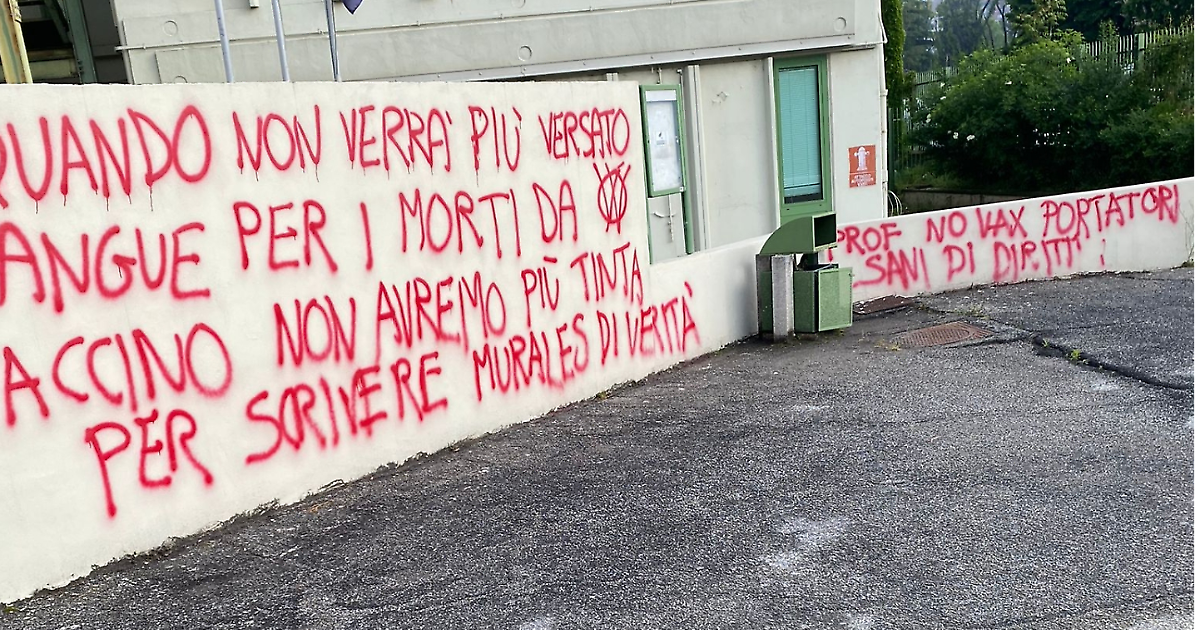 QUANDO NON VERRA' PIÙ VERSATO
ANGUE PER I MORTI DA
ACCINO NON AVREMO PIÙ TINTA
PER SCRIVERE MURALES DI VERITÀ
PROF NO VAX PORTATORI
SANI DI DIRITTI